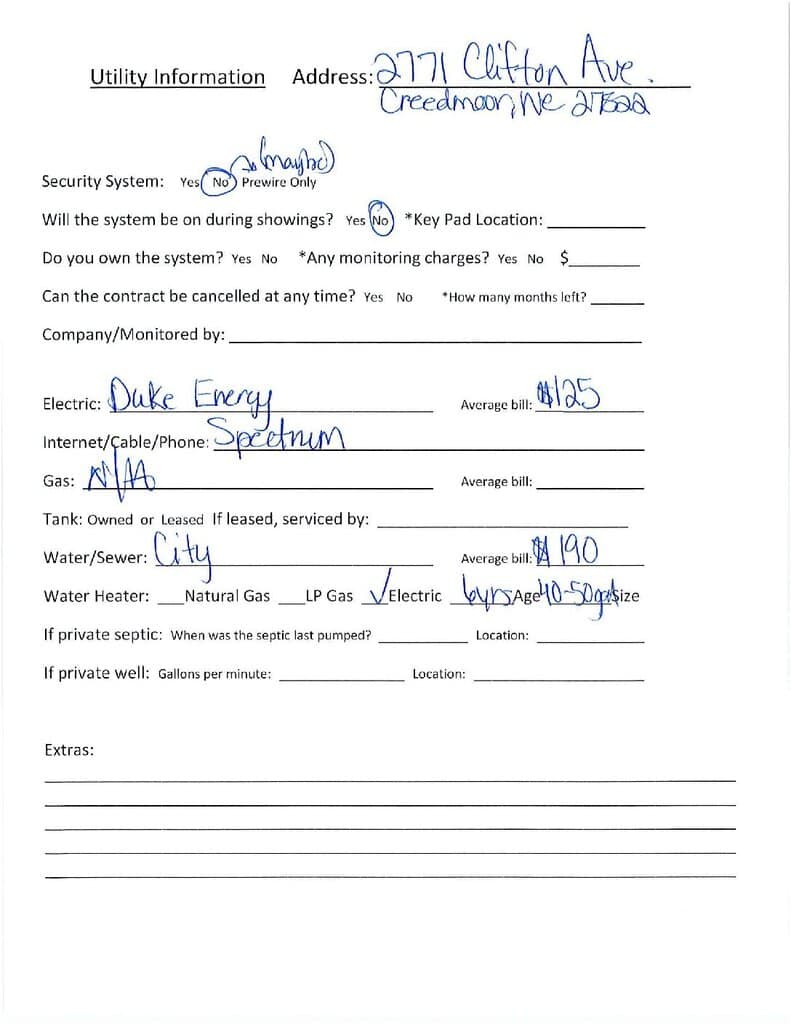 Utility Information Address: 2771 Clifton Ave.
Creedmoor, NC 27522
(maybe)
Security System: Yes No Prewire Only
Will the system be on during showings? Yes No *Key Pad Location: ____
Do you own the system? Yes No *Any monitoring charges? Yes No $____
Can the contract be cancelled at any time? Yes No *How many months left? ____
Company/Monitored by: ____
Electric: Duke Energy Average bill: $125
Internet/Cable/Phone: Spectrum
Gas: N/A Average bill: ____
Tank: Owned or Leased If leased, serviced by: ____
Water/Sewer: City Average bill: $190
Water Heater: ___Natural Gas ___LP Gas ✓Electric 6yrs Age 40-50gal Size
If private septic: When was the septic last pumped? ____ Location: ____
If private well: Gallons per minute: ____ Location: ____
Extras: